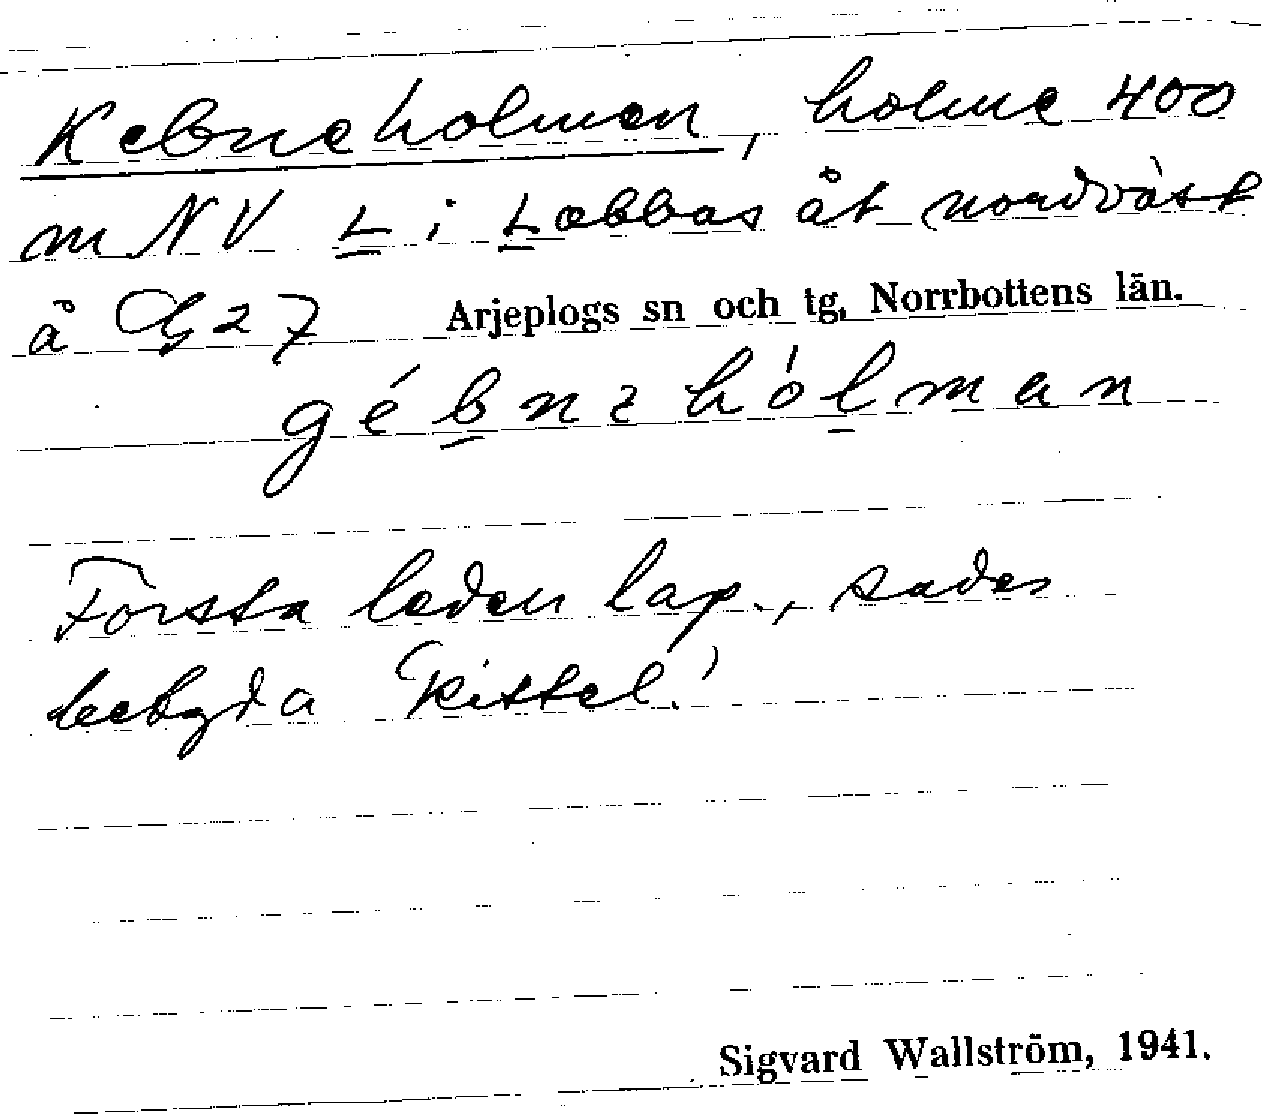 Kebneholmen, holme 400
m NV L i Labbas åt nordväst
å G 27 Arjeplogs sn och tg, Norrbottens län.
gébnɛhólman
Första leden lap., sades
betyda 'kittel.'
Sigvard Wallström, 1941.